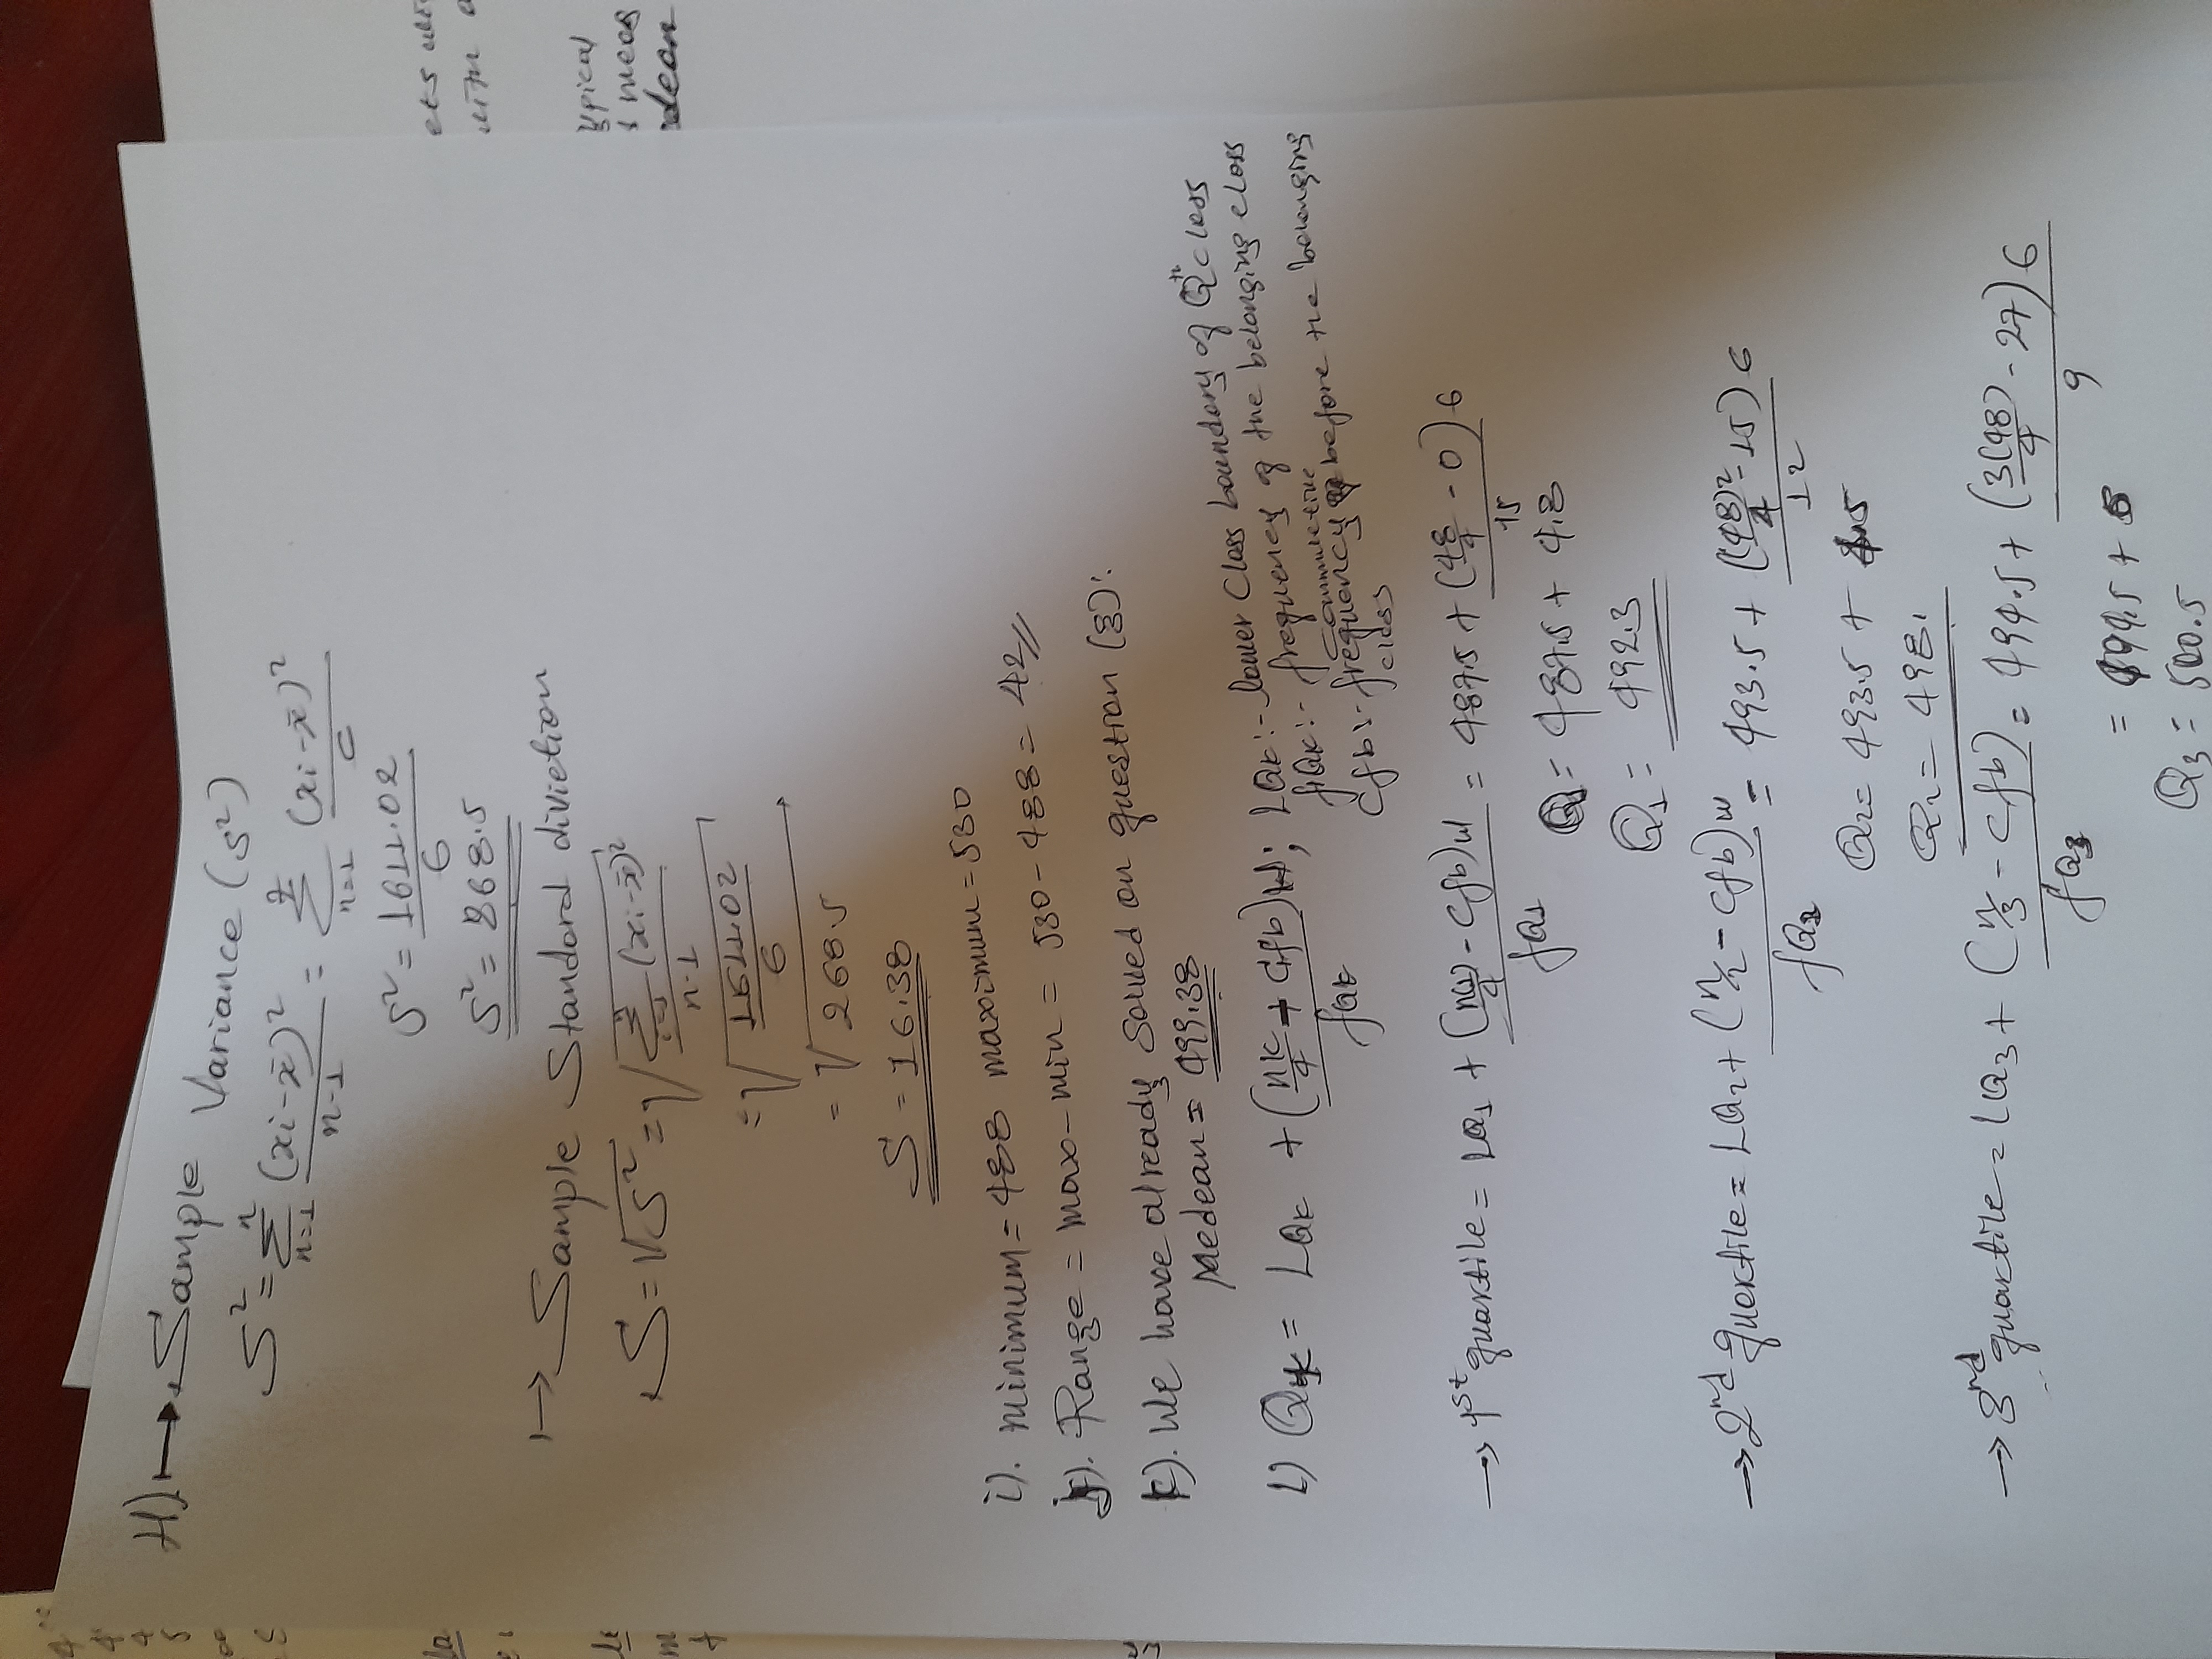 H) → Sample Variance (S²)
S² = Σ(n=1 to n) (xi - x̄)² / n-1 = Σ(n=1 to 7) (xi - x̄)² / 6
S² = 1611.02 / 6
S² = 268.5
→ Sample Standard divietion
S = √S² = √(Σ(i=1 to n) (xi - x̄)² / n-1)
= √(1611.02 / 6)
= √268.5
S = 16.38
i). minimum = 488 maximum = 530
j). Range = max - min = 530 - 488 = 42//
k). We have already Solved on question (g):
Medean = 499.38
l) Qk = LQk + (nk/4 - Cfb)w / fQk ; LQk:- lower Class boundary of Qth class
fQk:- frequency of the belonging class
Cfb:- commulative frequency before the belonging
class
→ 1st quartile = LQ1 + (n(1)/4 - Cfb)w / fQ1 = 487.5 + (48/4 - 0)6 / 15
Q1 = 487.5 + 4.8
Q1 = 492.3
→ 2nd quartile = LQ2 + (n/2 - Cfb)w / fQ2 = 493.5 + ((48)2/4 - 15)6 / 12
Q2 = 493.5 + 4.5
Q2 = 498.
→ 3nd quartile = LQ3 + (n/3 - Cfb) / fQ3 = 494.5 + (3(48)/4 - 27)6 / 9
= 494.5 + 6
Q3 = 500.5
ets
with
ypical
meas
dean